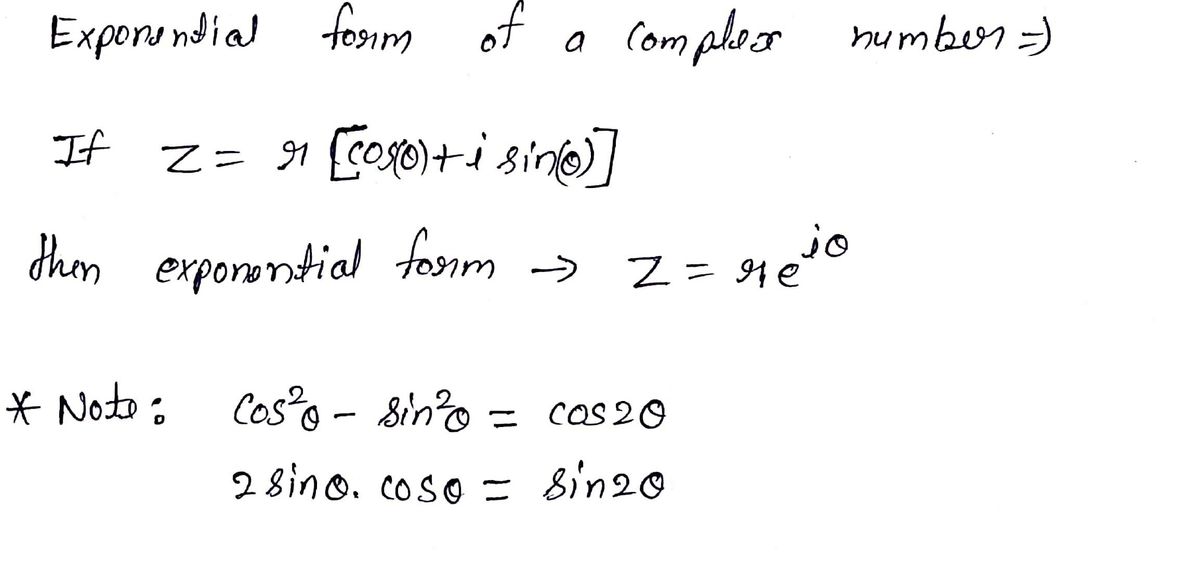 Exponential form of a complex number ⇒
If z = r [cos(θ) + i sin(θ)]
then exponential form → z = re^{iθ}
* Note: cos²θ - sin²θ = cos2θ
2 sinθ. cosθ = sin2θ